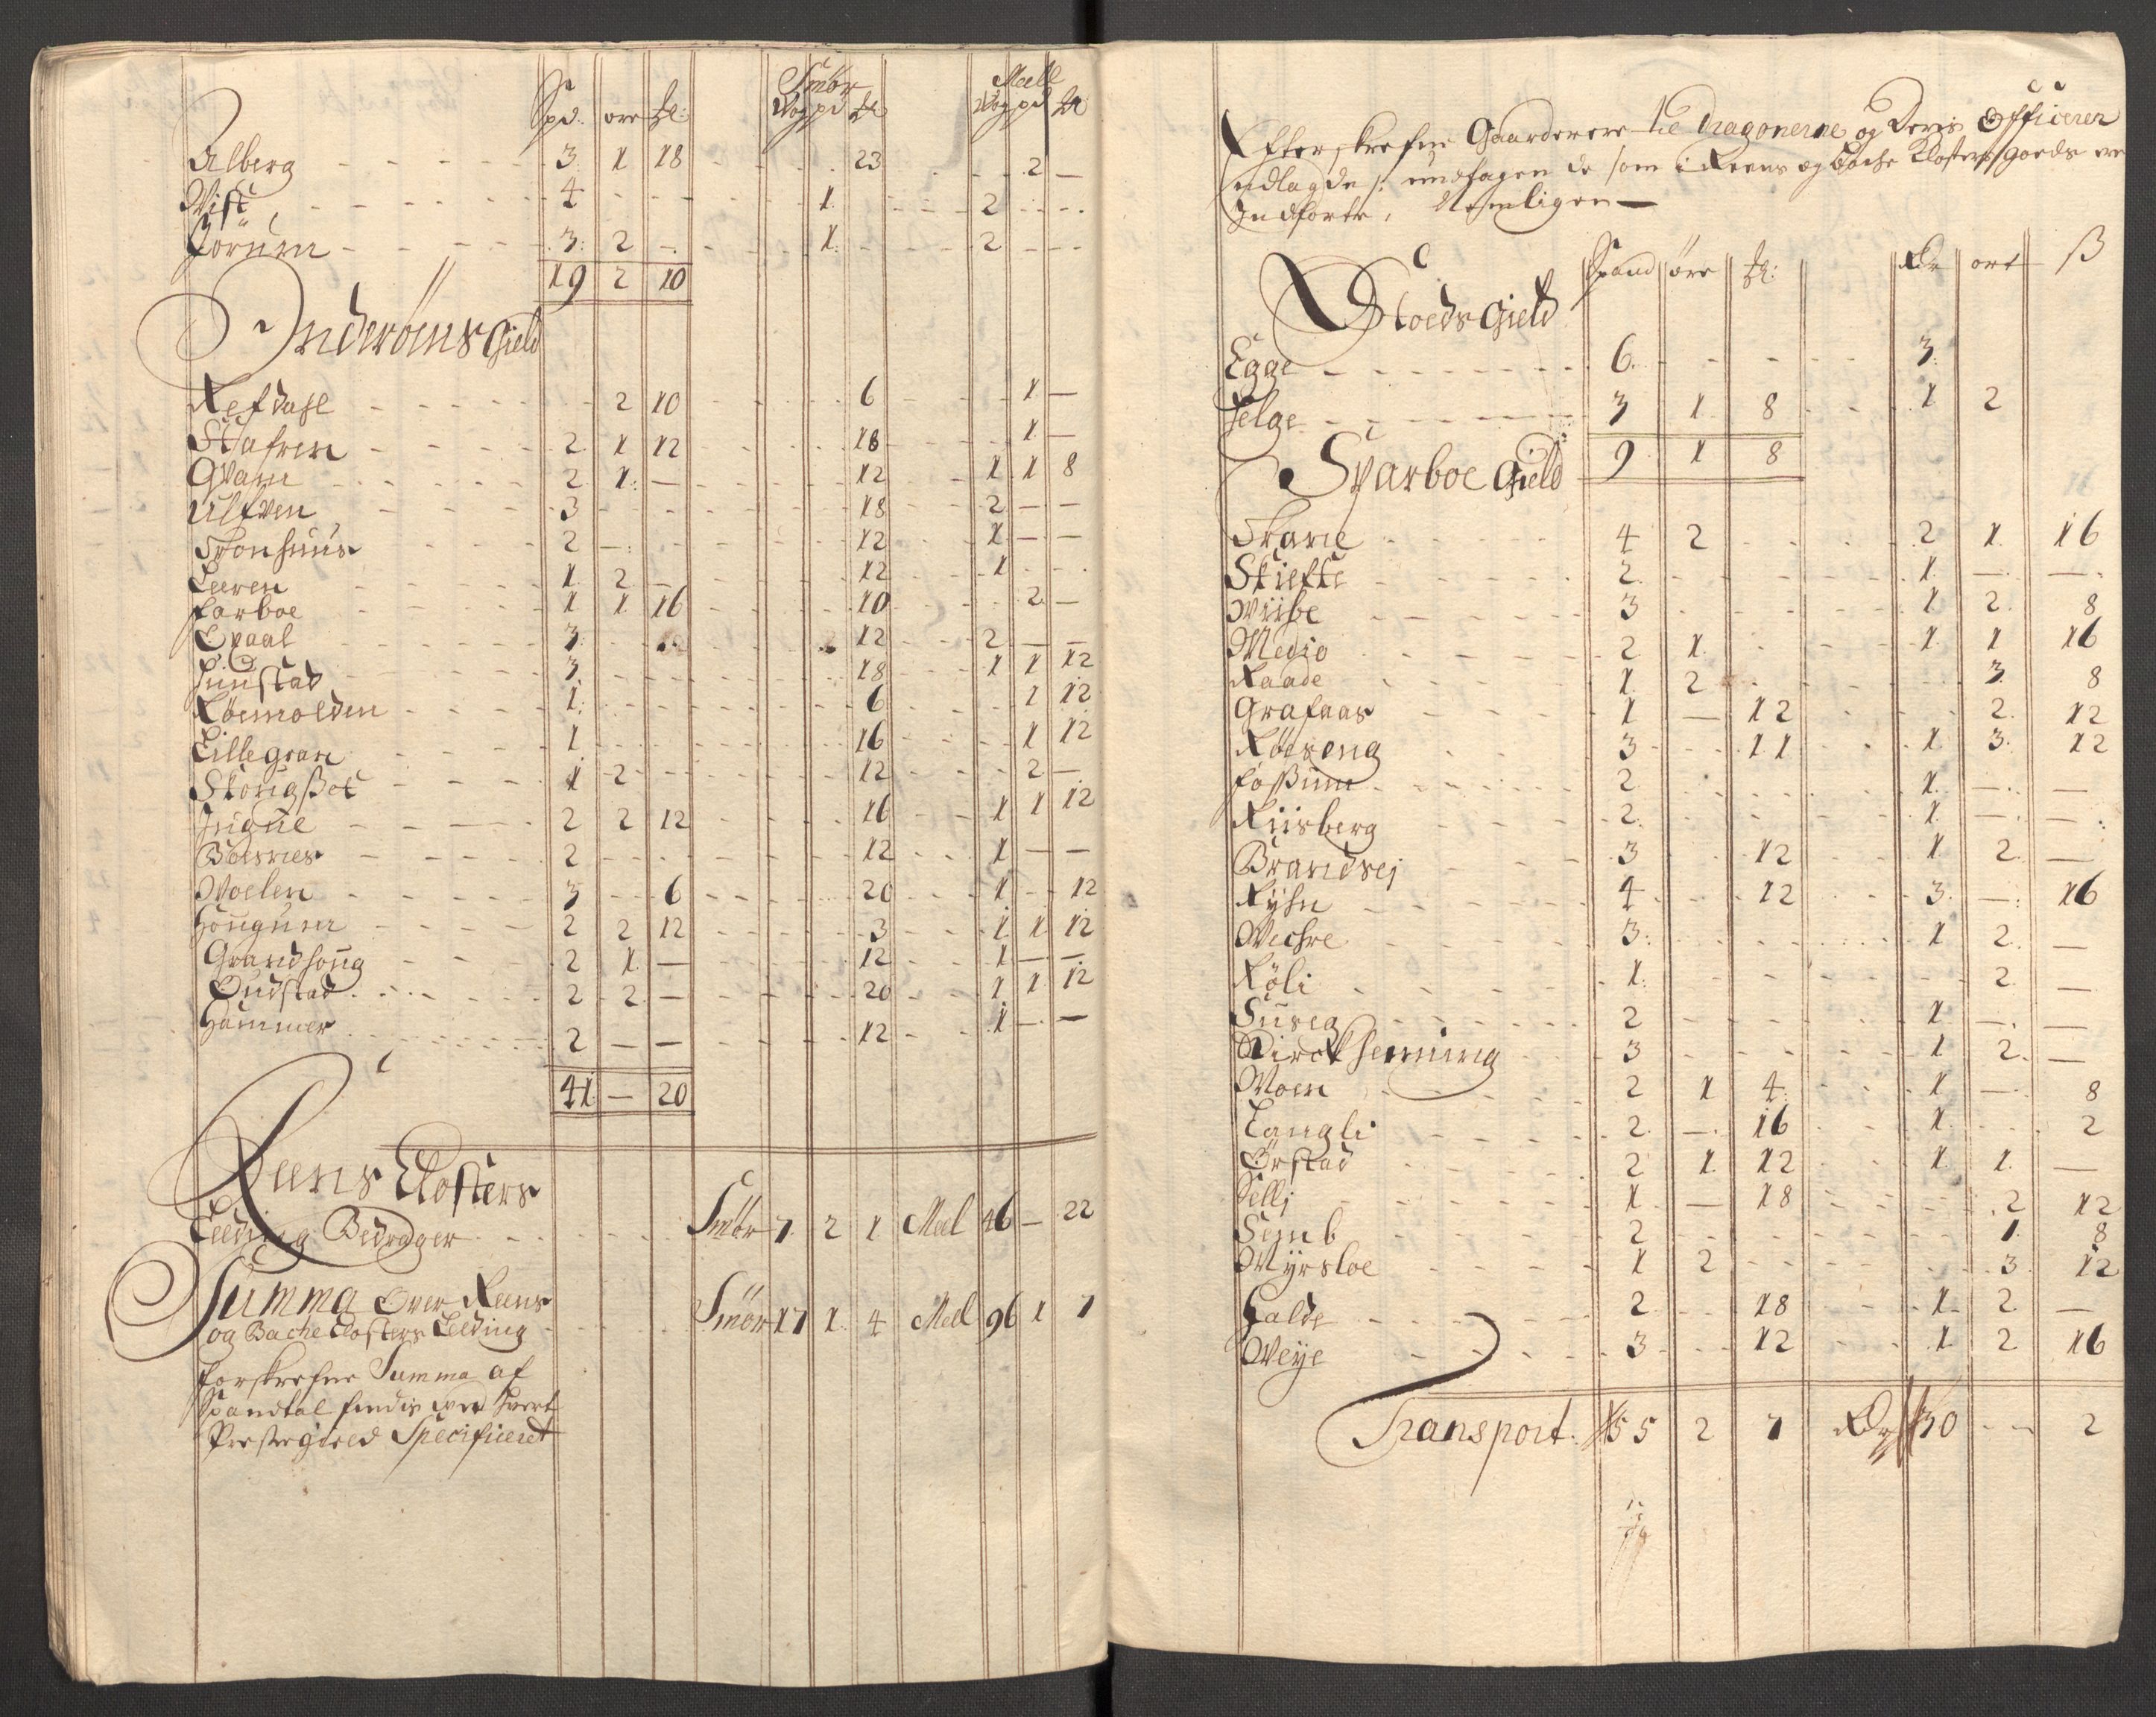 Smör Mell
Spd. öre ℔: Wog pd ℔ Wog pd ℔
Alberg 3. 1 18 23 2 —
Wist 4 1. 2
Jörum 3. 2 — 1. 2
19 2 10
Inderöens Gield
Refdahl 2 10 6 1 —
Stafren 2 1 12 18 1 —
Qvam 2 1. — 12 1 1 8
Ulfven 3 18 2 — —
Tronhuus 2 — 12 1 — —
Leeren 1 2 — 12 1
Farboe 1 1 16 10 2 —
Opaal 3. 12 2 — —
Huustad 3 18 1 1 12
Röemolden 1. 6 1 12
Lille gran 1 16 1 12
Skougsset 1 2 12 2 —
Jugne 2 2 12 16 1 1 12
Boesnes 2 12 1 — —
Woelen 3 6 20 1 12
Hougum 2 2 12 3 1 1 12
Grandhoug 2 1 — 12 1 — —
Oudstad 2 2 — 20 1 1 12
Hammer 2 — — 12 1 — —
41 — 20
Reens Closters
Leding Bedrager Smör 7. 2 1 Mel 46 — 22
Summa Over Reens
og Bache Closters Leding Smör 17 1. 4 Mell 96 1 7
forskrefne Summa af
Spandtal findis ved hvert
Prestegield Specificeret
Efterskrefne Gaarder ere til Dragonerne og Deris Officerer
udlagde, undtagen de som i Reens og Bache Closters goeds ere
Indförte, Nemligen —
Spand öre ℔: Rdr ort ß
Stoeds Gield
Egge 6. 3.
Helge 3 1 8 1 2
9 1 8
Sparboe Gield
Trane 4 2 2 1. 16
Skiefte 2. 1. — —
Wiibe 3 1. 2. 8
Medio 2 1. 1. 1 16
Raade 1. 2 3. 8
Grafaas 1 — 12 2. 12
Röeseng 3 11 1. 3. 12
Fossum 2. 1. — —
Riisberg 2. 1. — —
Brandsej 3 12 1 2. —
Rÿhn 4 12 3. — 16
Wechre 3. 1 2. —
Röli 1. 2. —
Suuseg 2 1. — —
Dirck Henning 3 1 2. —
Moen 2 1 4. 1 — 8
Langli 2. — 16 1. 2
Örstad 2 1. 12 1. 1. —
Sellj 1. — 18 2 12
Semb 2 1. 8
Myrsloe 1 2 3. 12
Falde 2 18 1. 2. —
Weÿe 3 12 1 2 16
Transport. 55 2 7 Rdr 30 — 2